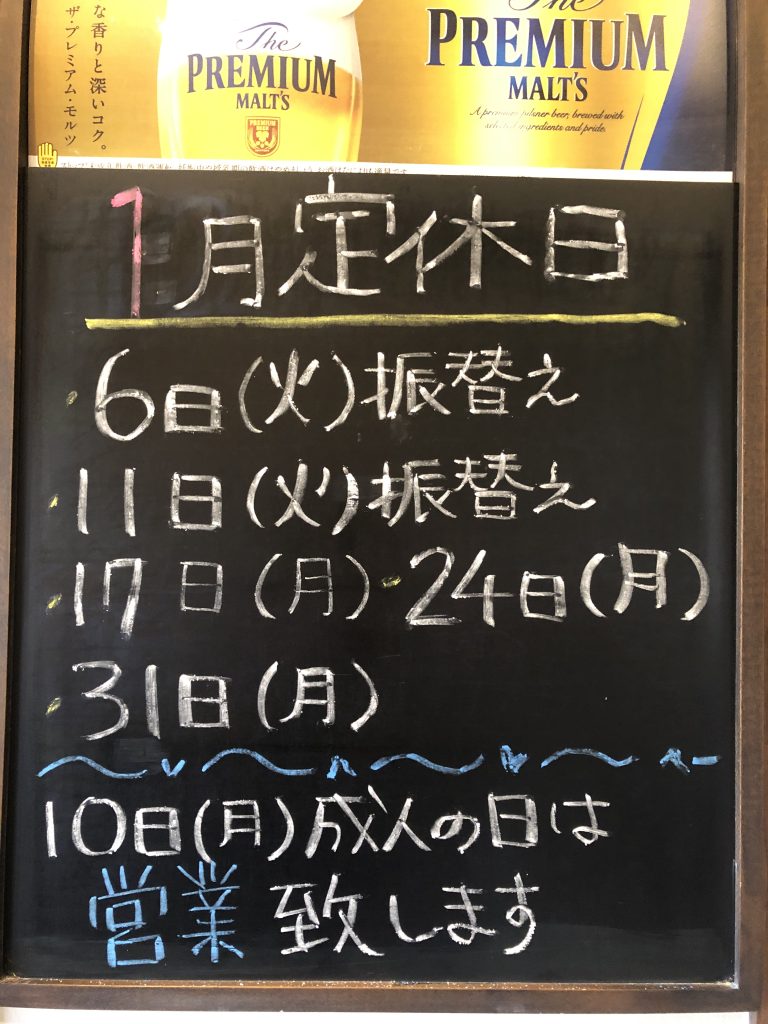 な香りと深いコク。
ザ・プレミアム・モルツ
The
PREMIUM
MALT'S
PREMIUM
The
PREMIUM
MALT'S
A premium pilsner beer, brewed with
selected ingredients and pride.
1月定休日
・6日(火)振替え
・11日(火)振替え
・17日(月)・24日(月)
・31日(月)
10日(月)成人の日は
営業致します